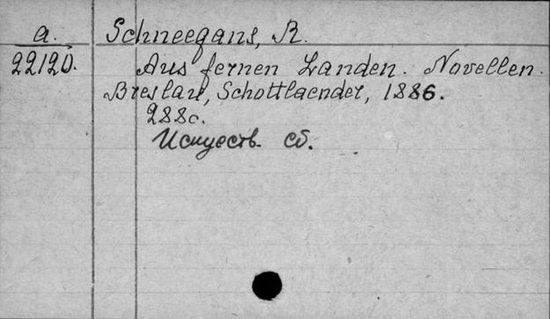 a. Schneegans, R.
22120. Aus fernen Landen. Novellen.
Breslau, Schottlaender, 1886.
288c.
Искусств. сб.